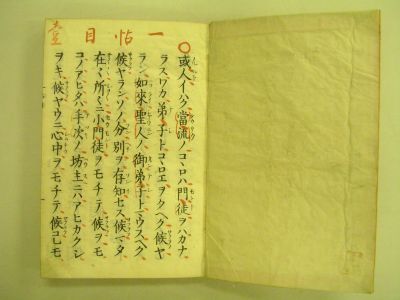 一帖目
或人イハク當流ノコヽロハ門徒ヲハカナ
ラスワカ弟子トコヽロエヲクヘク候ヤ
ラン如來聖人ノ御弟子トマウスヘク
候ヤランソノ分別ヲ存知セス候マタ
在々所々ニ小門徒ヲモチテ候ヲモ
コノアヒタハ手次ノ坊主ニハアヒカクシ
ヲキ候ヤウニ心中ヲモチテ候コレモ